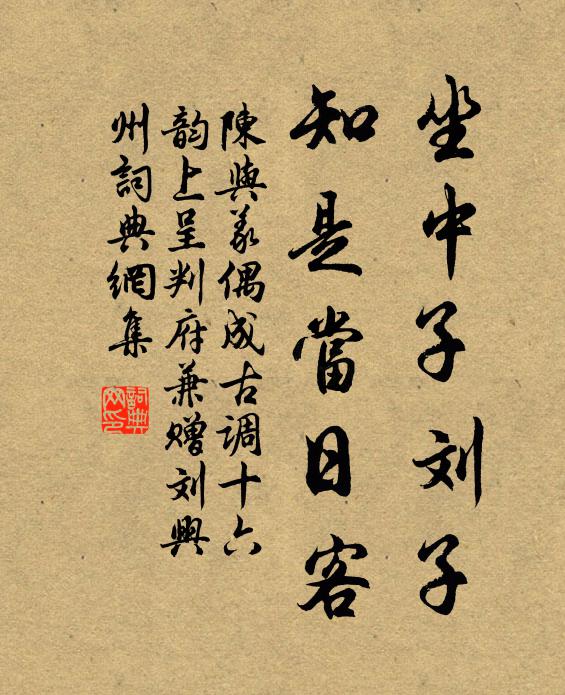 坐中子刘子
知是當日客
陳與義偶成古调十六
韵上呈判府兼赠刘興
州詞典網集
詞典
网印